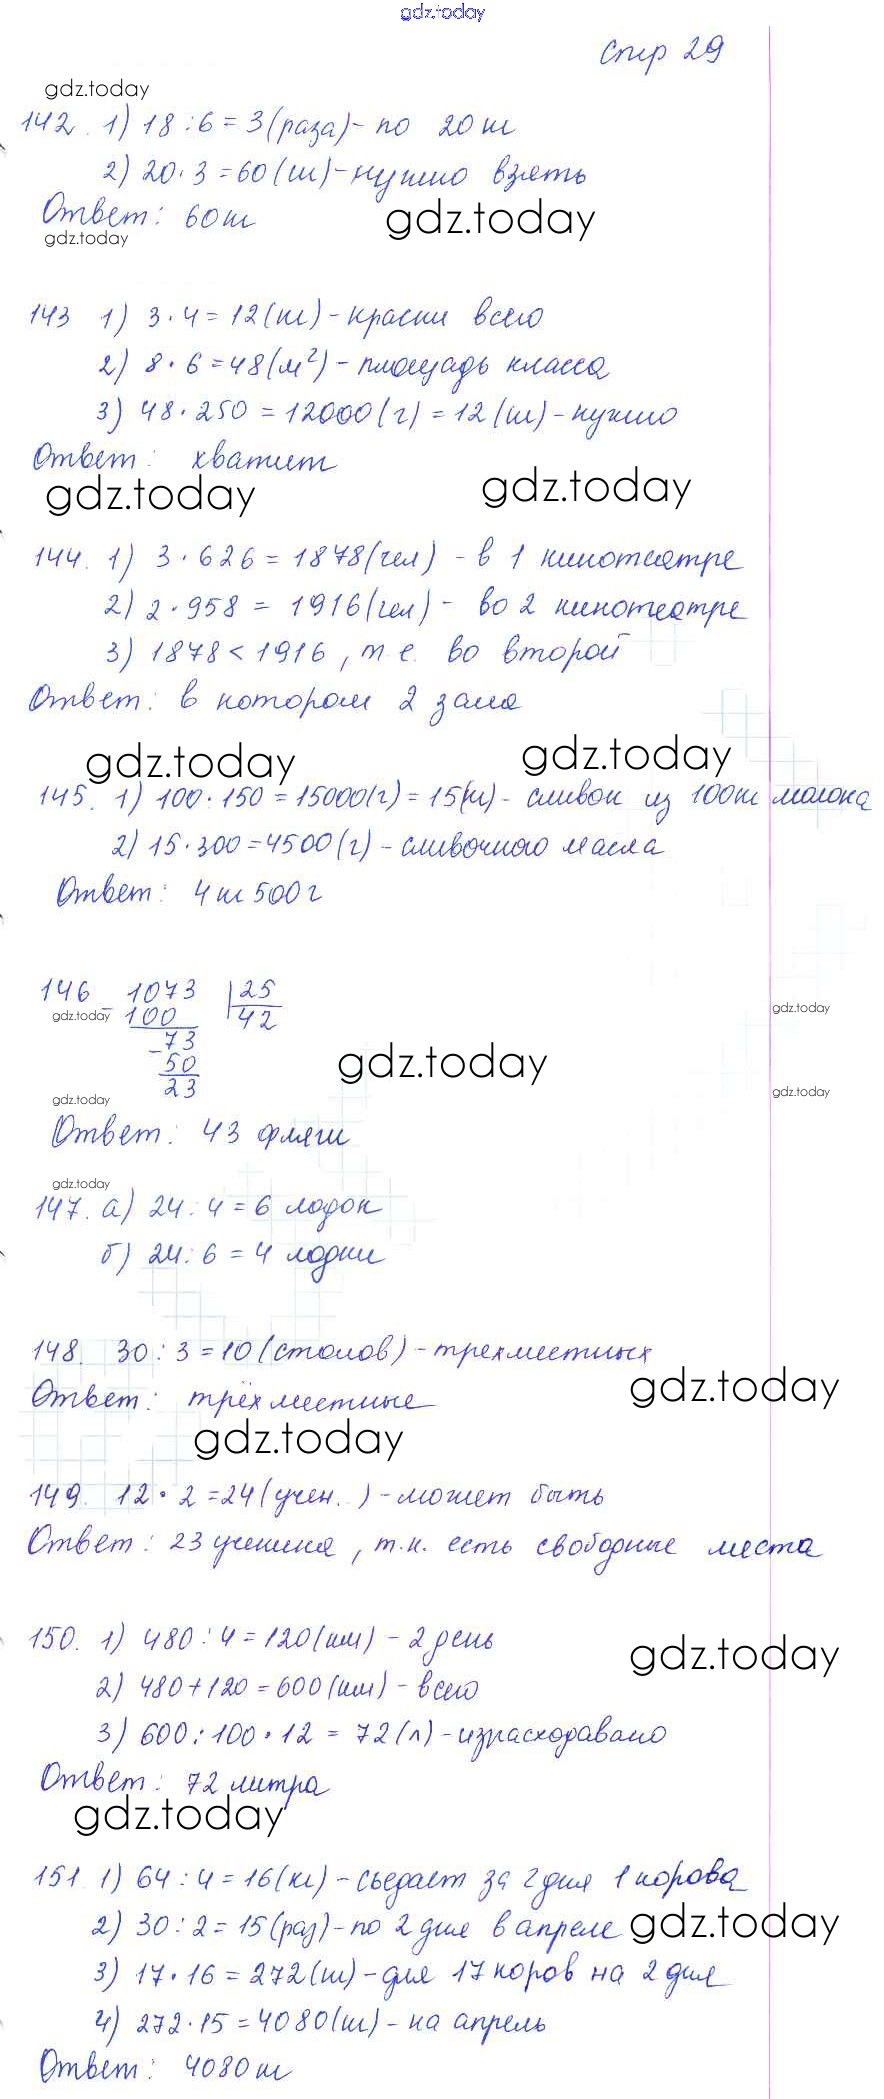 gdz.today
стр 29
gdz.today
142. 1) 18 : 6 = 3 (раза) - по 20 кг
2) 20 · 3 = 60 (кг) - нужно взять
Ответ: 60 кг
gdz.today
gdz.today
143 1) 3 · 4 = 12 (кг) - краски всего
2) 8 · 6 = 48 (м²) - площадь класса
3) 48 · 250 = 12000 (г) = 12 (кг) - нужно
Ответ: хватит
gdz.today
gdz.today
144. 1) 3 · 626 = 1878 (чел) - в 1 кинотеатре
2) 2 · 958 = 1916 (чел) - во 2 кинотеатре
3) 1878 < 1916, т. е. во второй
Ответ: в котором 2 зала
gdz.today
gdz.today
145. 1) 100 · 150 = 15000 (г) = 15 (кг) - сливок из 100 кг молока
2) 15 · 300 = 4500 (г) - сливочного масла
Ответ: 4 кг 500 г
146 - 1073 | 25
gdz.today 100 42 gdz.today
- 73
50 gdz.today
23
gdz.today gdz.today
Ответ: 43 фляги
gdz.today
147. а) 24 : 4 = 6 лодок
б) 24 : 6 = 4 лодки
148. 30 : 3 = 10 (столов) - трехместных
Ответ: трёхместные
gdz.today
gdz.today
149. 12 · 2 = 24 (учен.) - может быть
Ответ: 23 ученика, т.к. есть свободные места
150. 1) 480 : 4 = 120 (км) - 2 день
gdz.today
2) 480 + 120 = 600 (км) - всего
3) 600 : 100 · 12 = 72 (л) - израсходавано
Ответ: 72 литра
gdz.today
151. 1) 64 : 4 = 16 (кг) - съедает за 2 дня 1 корова
2) 30 : 2 = 15 (раз) - по 2 дня в апреле
gdz.today
3) 17 · 16 = 272 (кг) - для 17 коров на 2 дня
4) 272 · 15 = 4080 (кг) - на апрель
Ответ: 4080 кг